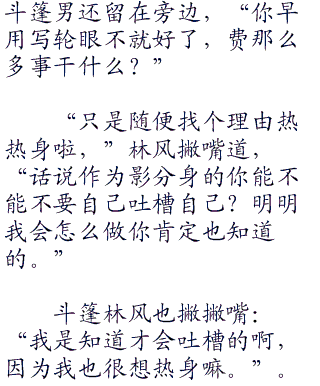 斗篷男还留在旁边，“你早
用写轮眼不就好了，费那么
多事干什么？”
“只是随便找个理由热
热身啦，”林风撇嘴道，
“话说作为影分身的你能不
能不要自己吐槽自己？明明
我会怎么做你肯定也知道
的。”
斗篷林风也撇撇嘴：
“我是知道才会吐槽的啊，
因为我也很想热身嘛。”。